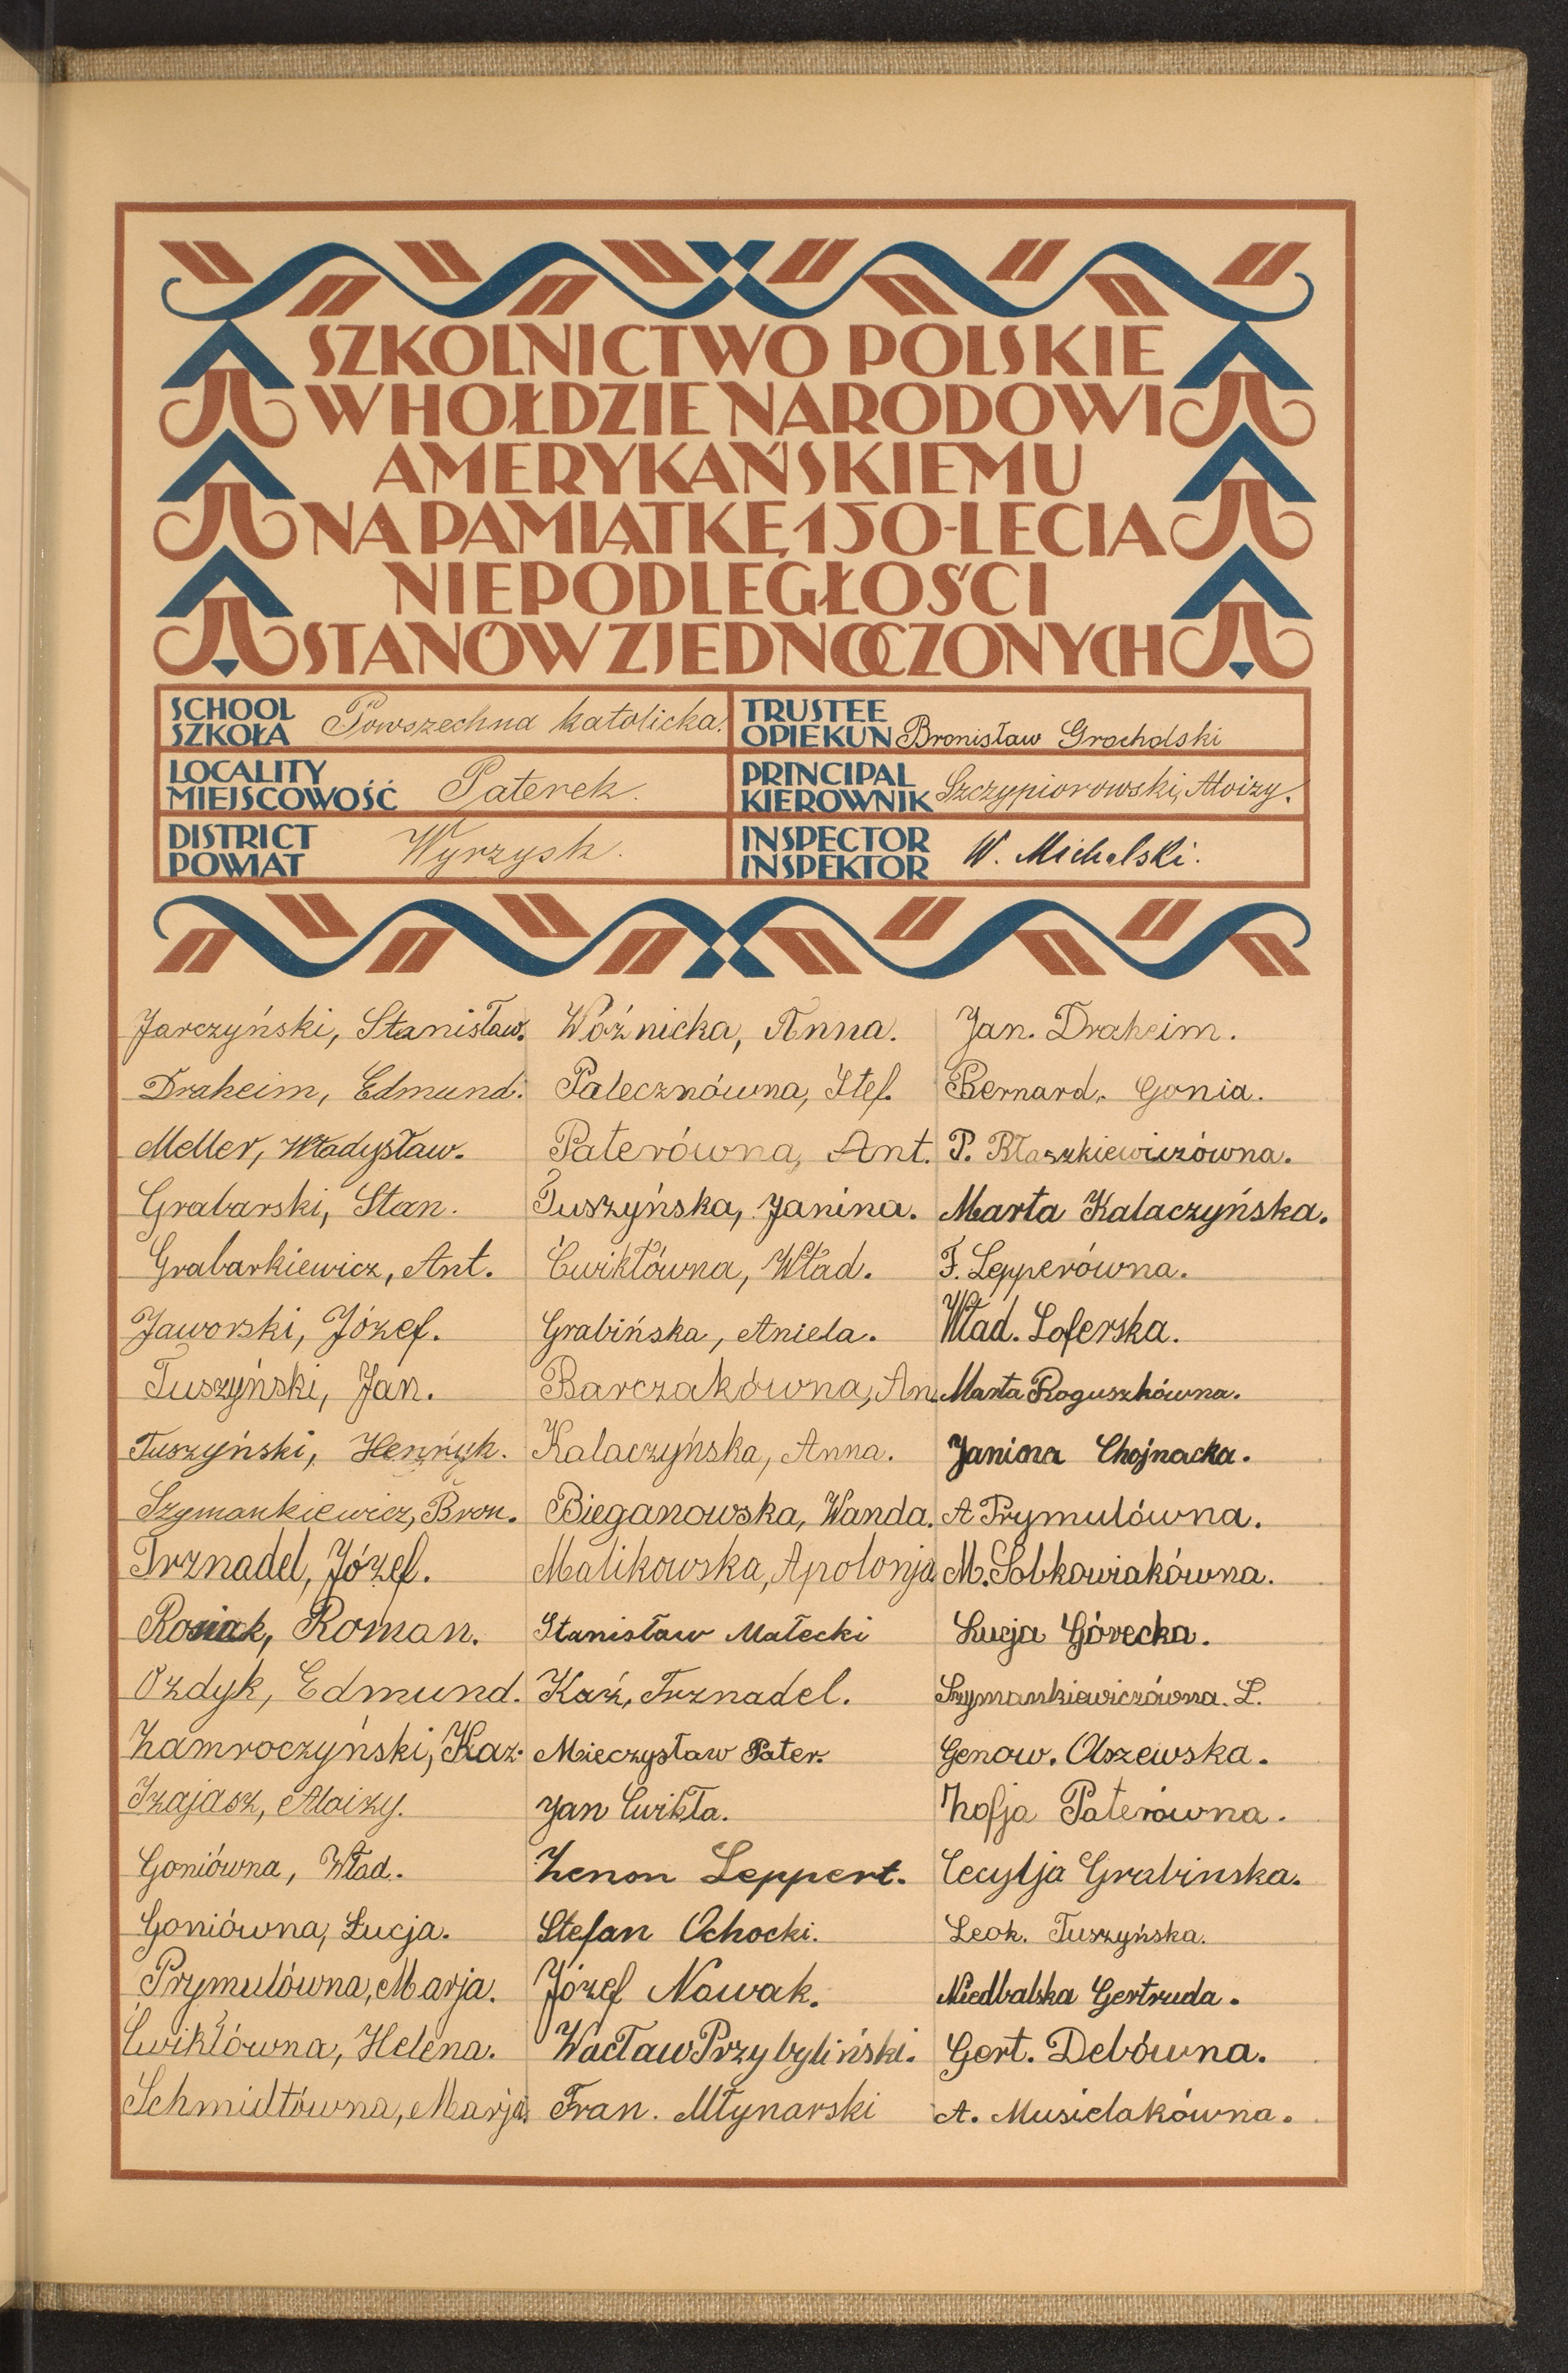 SZKOLNICTWO POLSKIE
W HOŁDZIE NARODOWI
AMERYKAŃSKIEMU
NA PAMIĄTKĘ 150-LECIA
NIEPODLEGŁOŚCI
STANÓW ZJEDNOCZONYCH
SCHOOL
SZKOŁA Powszechna katolicka.
TRUSTEE
OPIEKUN Bronisław Grochalski
LOCALITY
MIEJSCOWOŚĆ Paterek.
PRINCIPAL
KIEROWNIK Szczypiorowski, Aloizy.
DISTRICT
POWIAT Wyrzysk.
INSPECTOR
INSPEKTOR W. Michalski.
Jarczyński, Stanisław.
Draheim, Edmund.
Meller, Władysław.
Grabarski, Stan.
Grabarkiewicz, Ant.
Jaworski, Józef.
Tuszyński, Jan.
Tuszyński, Henryk.
Szymankiewicz, Bron.
Trznadel, Józef.
Rosiak, Roman.
Ozdyk, Edmund.
Zamroczyński, Kaz.
Izajasz, Aloizy.
Goniówna, Wład.
Goniówna, Łucja.
Prymulówna, Marja.
Ćwiktówna, Helena.
Schmidtówna, Marja.
Woźnicka, Anna.
Palecznówna, Stef.
Paterówna, Ant.
Tuszyńska, Janina.
Ćwikłówna, Wład.
Grabińska, Aniela.
Barczakówna, An.
Kalaczyńska, Anna.
Bieganowska, Wanda.
Malikowska, Apolonja
Stanisław Małecki
Kaź. Trznadel.
Mieczysław Pater.
Jan Ćwikła.
Zenon Leppert.
Stefan Ochocki.
Józef Nowak.
Wacław Przybyliński.
Fran. Młynarski
Jan. Draheim.
Bernard. Gonia.
P. Błaszkiewiczówna.
Marta Kalaczyńska.
F. Lepperówna.
Wład. Loferska.
Marta Roguszkówna.
Janina Chojnacka.
A Prymulówna.
M. Sobkowiakówna.
Łucja Górecka.
Szymankiewiczówna. L.
Genow. Olszewska.
Zofja Paterówna.
Cecylja Grabinska.
Leok. Tuszyńska.
Niedbalska Gertruda.
Gert. Debówna.
A. Musielakówna.